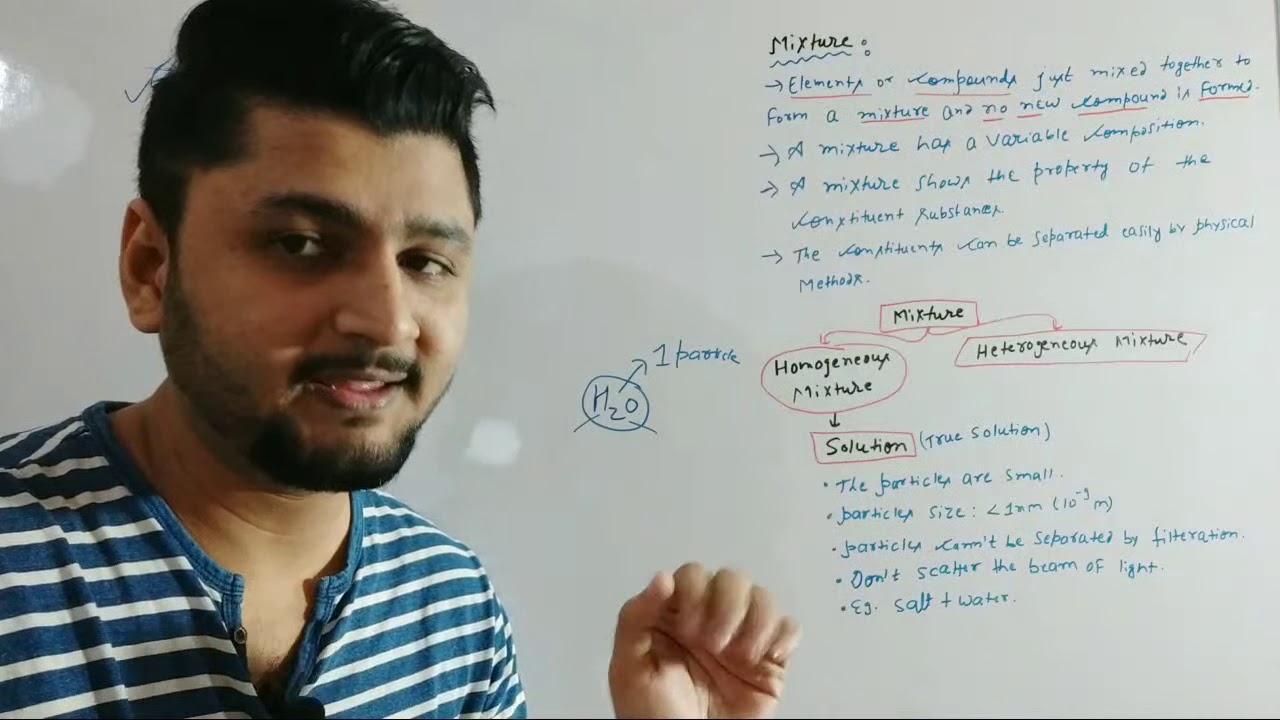 Mixture:
→ Elements or compounds just mixed together to
form a mixture and no new compound is formed.
→ A mixture has a variable composition.
→ A mixture shows the property of the
constituent substances.
→ The constituents can be separated easily by physical
Methods.
Mixture
Homogeneous
Mixture
Heterogeneous Mixture
H2O
1 particle
Solution (True solution)
• The particles are small.
• particles size: <1nm (10⁻⁹ m)
• particles cann't be separated by filteration.
• Don't scatter the beam of light.
• Eg. salt + water.